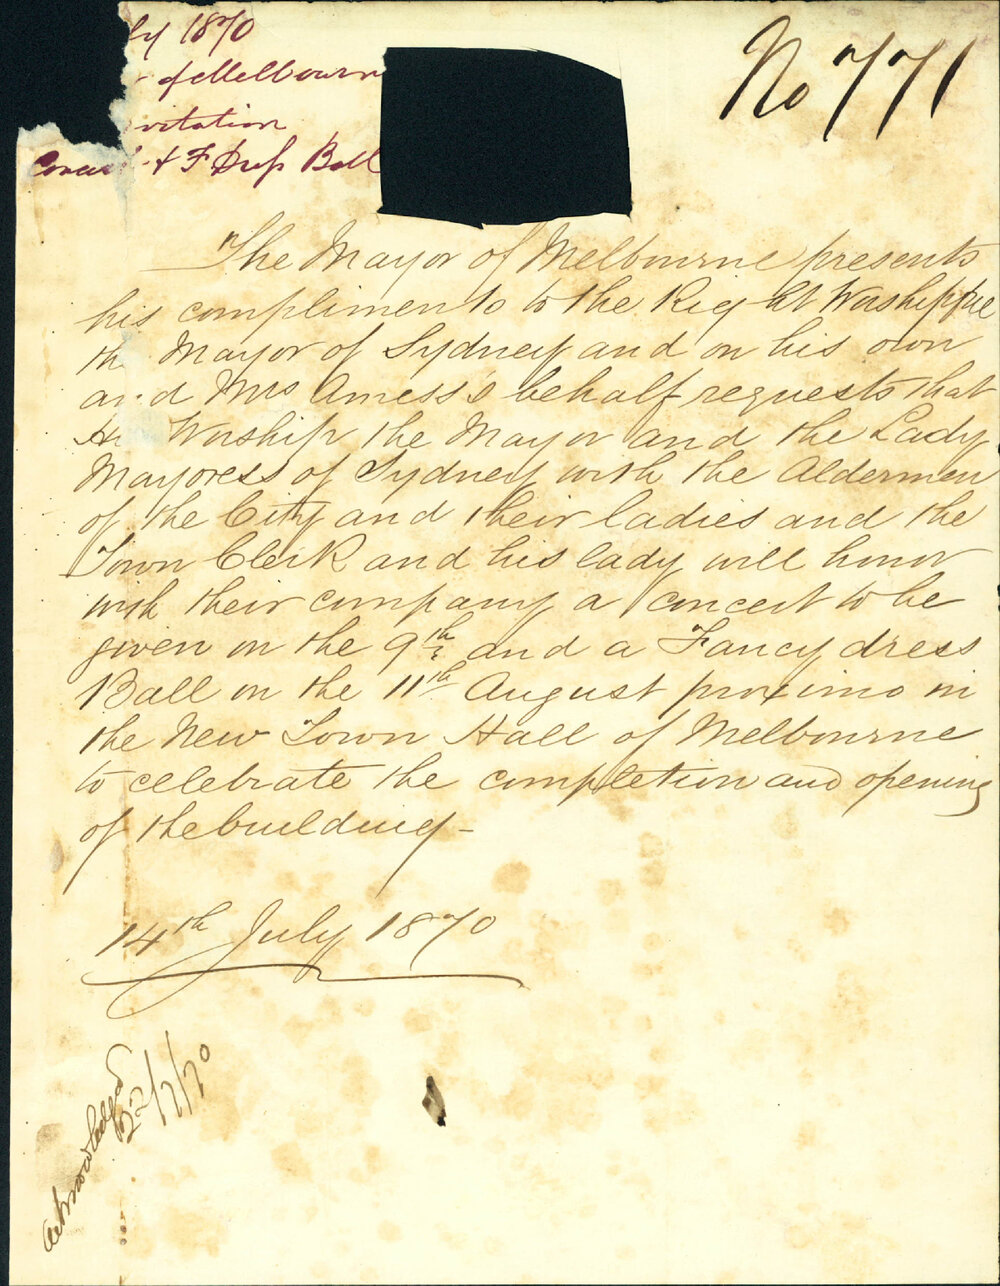 ly 1870
of Melbourn
vitation
Conce t & F Dress Ball
No 771
The Mayor of Melbourne presents
his compliments to the Right Worshipful
the Mayor of Sydney and on his own
and Mrs Amess's behalf requests that
His Worship the Mayor and the Lady
Mayoress of Sydney with the Aldermen
of the City and their ladies and the
Town Clerk and his lady will honor
with their company a concert to be
given on the 9th and a Fancy dress
Ball on the 11th August proximo in
the New Town Hall of Melbourne
to celebrate the completion and opening
of the building -
14th July 1870
Acknowledged
22/7/70